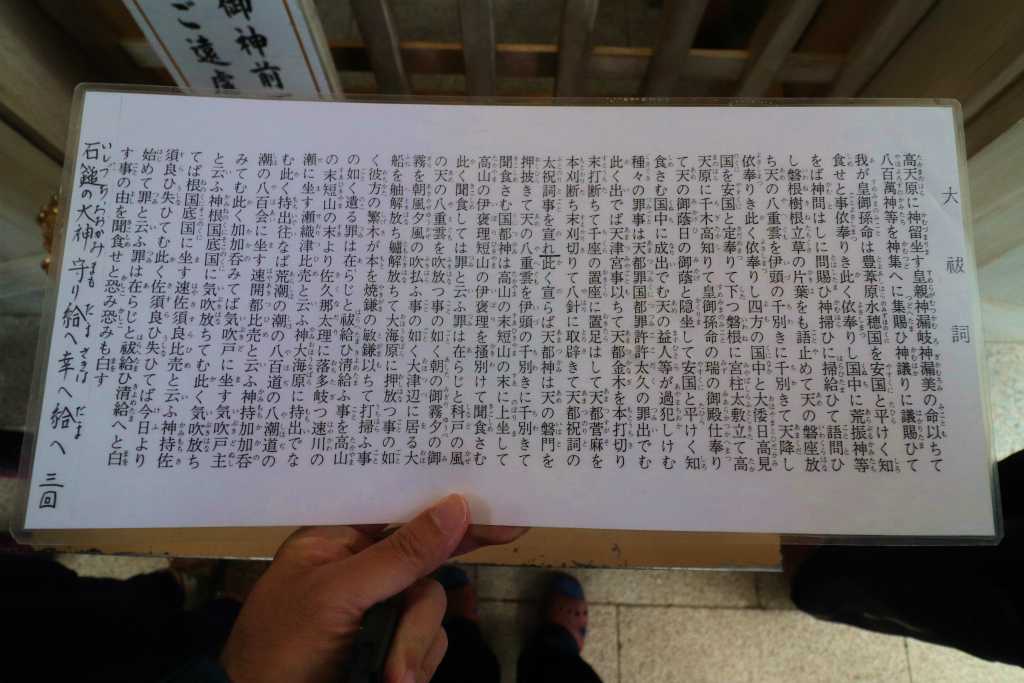 御神前
ご遠慮
大祓詞
高天原に神留坐す皇親神漏岐神漏美の命以ちて
八百萬神等を神集へに集賜ひ神議りに議賜ひて
我が皇御孫命は豊葦原水穂国を安国と平けく知
食せと事依奉りき此く依奉りし国中に荒振神等
をば神問はしに問賜ひ神掃ひに掃給ひて語問ひ
し磐根樹根立草の片葉をも語止めて天の磐座放
ち天の八重雲を伊頭の千別きに千別きて天降し
依奉りき此く依奉りし四方の国中と大倭日高見
国を安国と定奉りて下つ磐根に宮柱太敷立て高
天原に千木高知りて皇御孫命の瑞の御殿仕奉り
て天の御蔭日の御蔭と隠坐して安国と平けく知
食さむ国中に成出でむ天の益人等が過犯しけむ
種々の罪事は天都罪国都罪許許太久の罪出でむ
此く出でば天津宮事以ちて天都金木を本打切り
末打断ちて千座の置座に置足はして天都菅麻を
本刈断ち末刈切りて八針に取辟きて天都祝詞の
太祝詞事を宣れ此く宣らば天都神は天の磐門を
押披きて天の八重雲を伊頭の千別きに千別きて
聞食さむ国都神は高山の末短山の末に上坐して
高山の伊褒理短山の伊褒理を掻別けて聞食さむ
此く聞食しては罪と云ふ罪は在らじと科戸の風
の天の八重雲を吹放つ事の如く朝の御霧夕の御
霧を朝風夕風の吹払ふ事の如く大津辺に居る大
船を舳解放ち艫解放ちて大海原に押放つ事の如
く彼方の繁木が本を焼鎌の敏鎌以ちて打掃ふ事
の如く遺る罪は在らじと祓給ひ清給ふ事を高山
の末短山の末より佐久那太理に落多岐つ速川の
瀬に坐す瀬織津比売と云ふ神大海原に持出でな
む此く持出往なば荒潮の潮の八百道の八潮道の
潮の八百会に坐す速開都比売と云ふ神持加加呑
みてむ此く加加呑みてば気吹戸に坐す気吹戸主
と云ふ神根国底国に気吹放ちてむ此く気吹放ち
てば根国底国に坐す速佐須良比売と云ふ神持佐
須良ひ失ひてむ此く佐須良ひ失ひてば今日より
始めて罪と云ふ罪は在らじと祓給ひ清給へと白
す事の由を聞食せと恐み恐みも白す
石鎚の大神 守り給へ幸へ給へ 三回